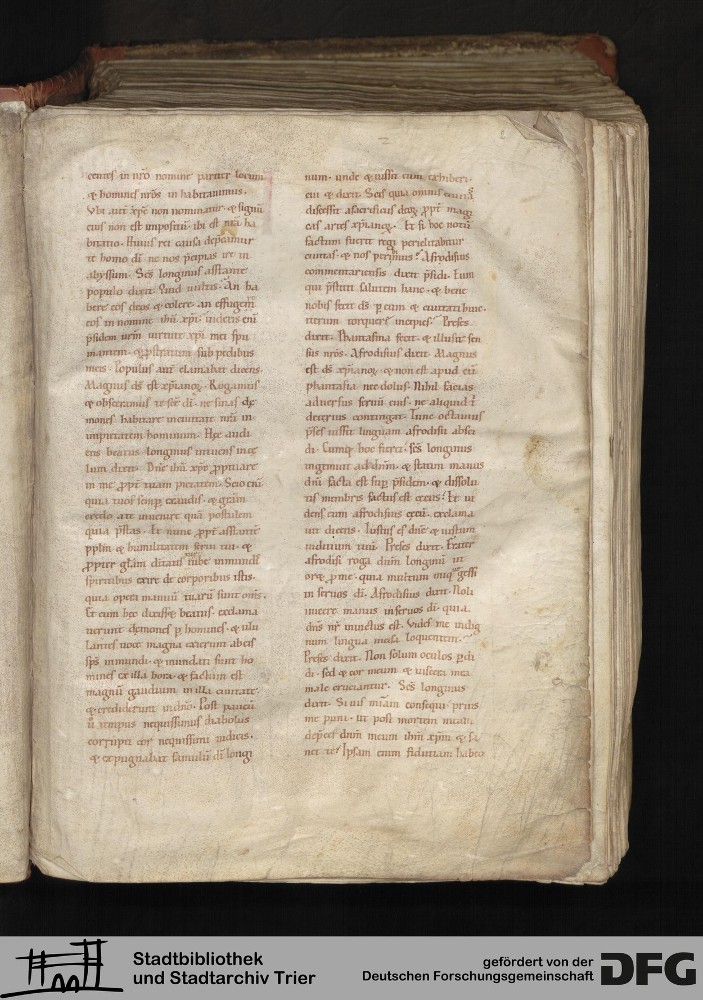 centes in nr̄o nomine pariter locum
& homines nr̄os in habitauimus.
Vbi aut̄ xp̄c non nominatur. & signū
eius non est impositū. ibi est nr̄a ha
bitatio. Huius rei causa dep̄camur
te homo dī ne nos p̄cipias ire in
abyssum. Sc̄s longinus astante
populo dixit. Quid uultis. An ha
bere eos deos & colere. an effugem̄
eos in nomine ihū xp̄i. inderis eni
p̄sidem urm̄ uirtute xp̄i mei spu
mantem. & p̄stratum sub pedibus
meis. Populus aut̄ clamabat dicens.
Magnus d̄s est xp̄ianoꝝ. Rogamus
& obsecramus te sc̄e dī. ne sinas de
mones habitare inciuitate nr̄a in
impietatem hominum. Hęc audi
ens beatus longinus intuens in cę
lum dixit. Dn̄e ihū xp̄e ꝓpitiare
in me ꝓpt̄ tuam pietatem. Scio enī
quia tuos semꝑ exaudis. & gr̄am
credo ait inuenire quā postulem
quia p̄stas. Et nunc ꝓpt̄ astante
pplm̄ & humilitatem serui tui. &
ꝓpter gl̄am diuaīs tuę iube inmundis
spiritibus exire de corporibus istis.
quia opera manuū tuarū sunt om̄s.
Et cum hęc dixisset beatus. exclama
uerunt dęmones ꝑ homines. & ulu
lantes uoce magna exierunt ab eis
sp̄s inmundi. & mundati sunt ho
mines ex illa hora. & factum est
magnū gaudium in illa ciuitate.
& crediderunt in dn̄o. Post paucū
ū tempus nequissimus diabolus
corrupit cor nequissimi iudicis.
& expugnabat famulū dī longi
num. unde & iussit eum exhiberi.
cui & dixit. Scis quia omnis ciuitas
discessit a sacrificiis deoꝝ ꝓpt̄ magi
cas artes xp̄ianoꝝ. Et si hoc notū
factum fuerit regi periclitabitur
ciuitas. & nos perimus? Afrodisius
commentariensis dixit p̄sidi. Eum
qui p̄stitit salutem hanc. & bene
nobis fecit d̄s ꝑ eum & ciuitati huic.
iterum torquere incipies? Preses
dixit. Phantasma fecit. & illusit sen
sus nr̄os. Afrodisius dixit. Magnus
est d̄s xp̄ianoꝝ. & non est apud eū
phantasia nec dolus. Nihil facias
aduersus seruū eius. ne aliquid t̄
deterius contingat. Tunc octauius
p̄ses iussit linguam afrodisii absci
di. Cumq; hoc fieret. sc̄s longinus
ingemuit ad dn̄m. & statim manus
dn̄i facta est sup̄ p̄sidem. & dissolu
tis membris factus est cęcus? Et ui
dens eum afrodisius cęcū. exclama
uit dicens. Iustus es dn̄e & iustum
iuditium tuū. Preses dixit. Frater
afrodisi roga dn̄m longinū ut
oret ꝓ me. quia multum iniq; gessi
in seruos dī. Afrodisius dixit. Noli
inicere manus in seruos dī. quia
dn̄s nr̄ inuictus est. Vides me indig
num lingua incisa loquentem.
Preses dixit. Non solum oculos ꝑdi
di. sed & cor meum & uiscera mea
male cruciantur. Sc̄s longinus
dixit. Si uis uitam consequi. prius
me puni. ut post mortem meam
dep̄cer dn̄m meum ihm̄ xp̄m & sa
net te? Ipsam enim fidutiam habeo
Stadtbibliothek
und Stadtarchiv Trier
gefördert von der
Deutschen Forschungsgemeinschaft
DFG